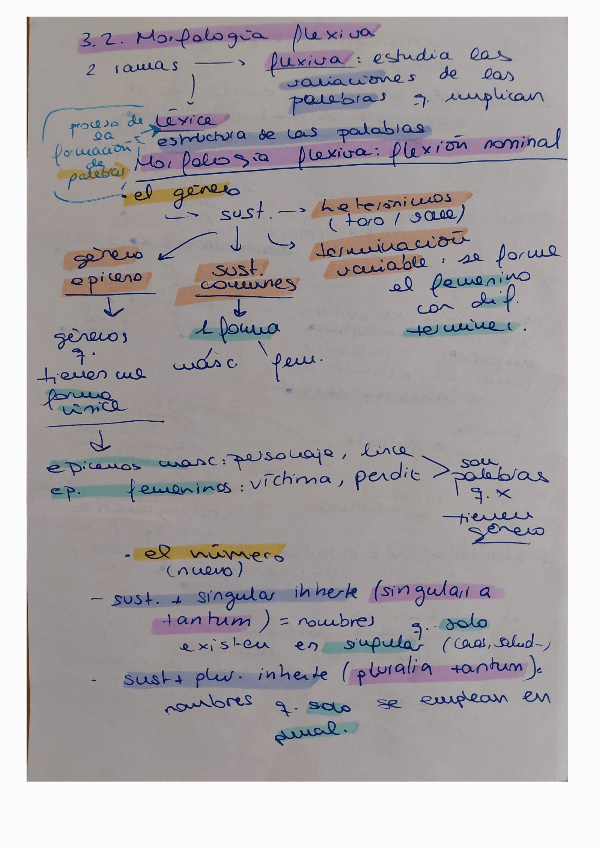 3.2. Morfología flexiva
2 ramas → flexiva : estudia las
variaciones de las
palabras q. implican
léxica
estructura de las palabras
proceso de
la
formación
de
palabras
Morfología flexiva : flexión nominal
· el género
--> sust. → heterónimos
(toro / vaca)
terminación
variable : se forma
el femenino
con dif.
terminac.
género
epiceno
sust.
comunes
géneros
q.
tienen una
forma
única
1 forma
masc. fem.
epicenos masc : personaje, lince
ep. femeninos : víctima, perdiz
son
palabras
q. x
tienen
género
· el número
(nuevo)
- sust. + singular inherte (singularia
tantum) = nombres q. solo
existen en singular (caos, salud-,
- sust + plur. inherte (pluralia tantum):
nombres q. solo se emplean en
plural.